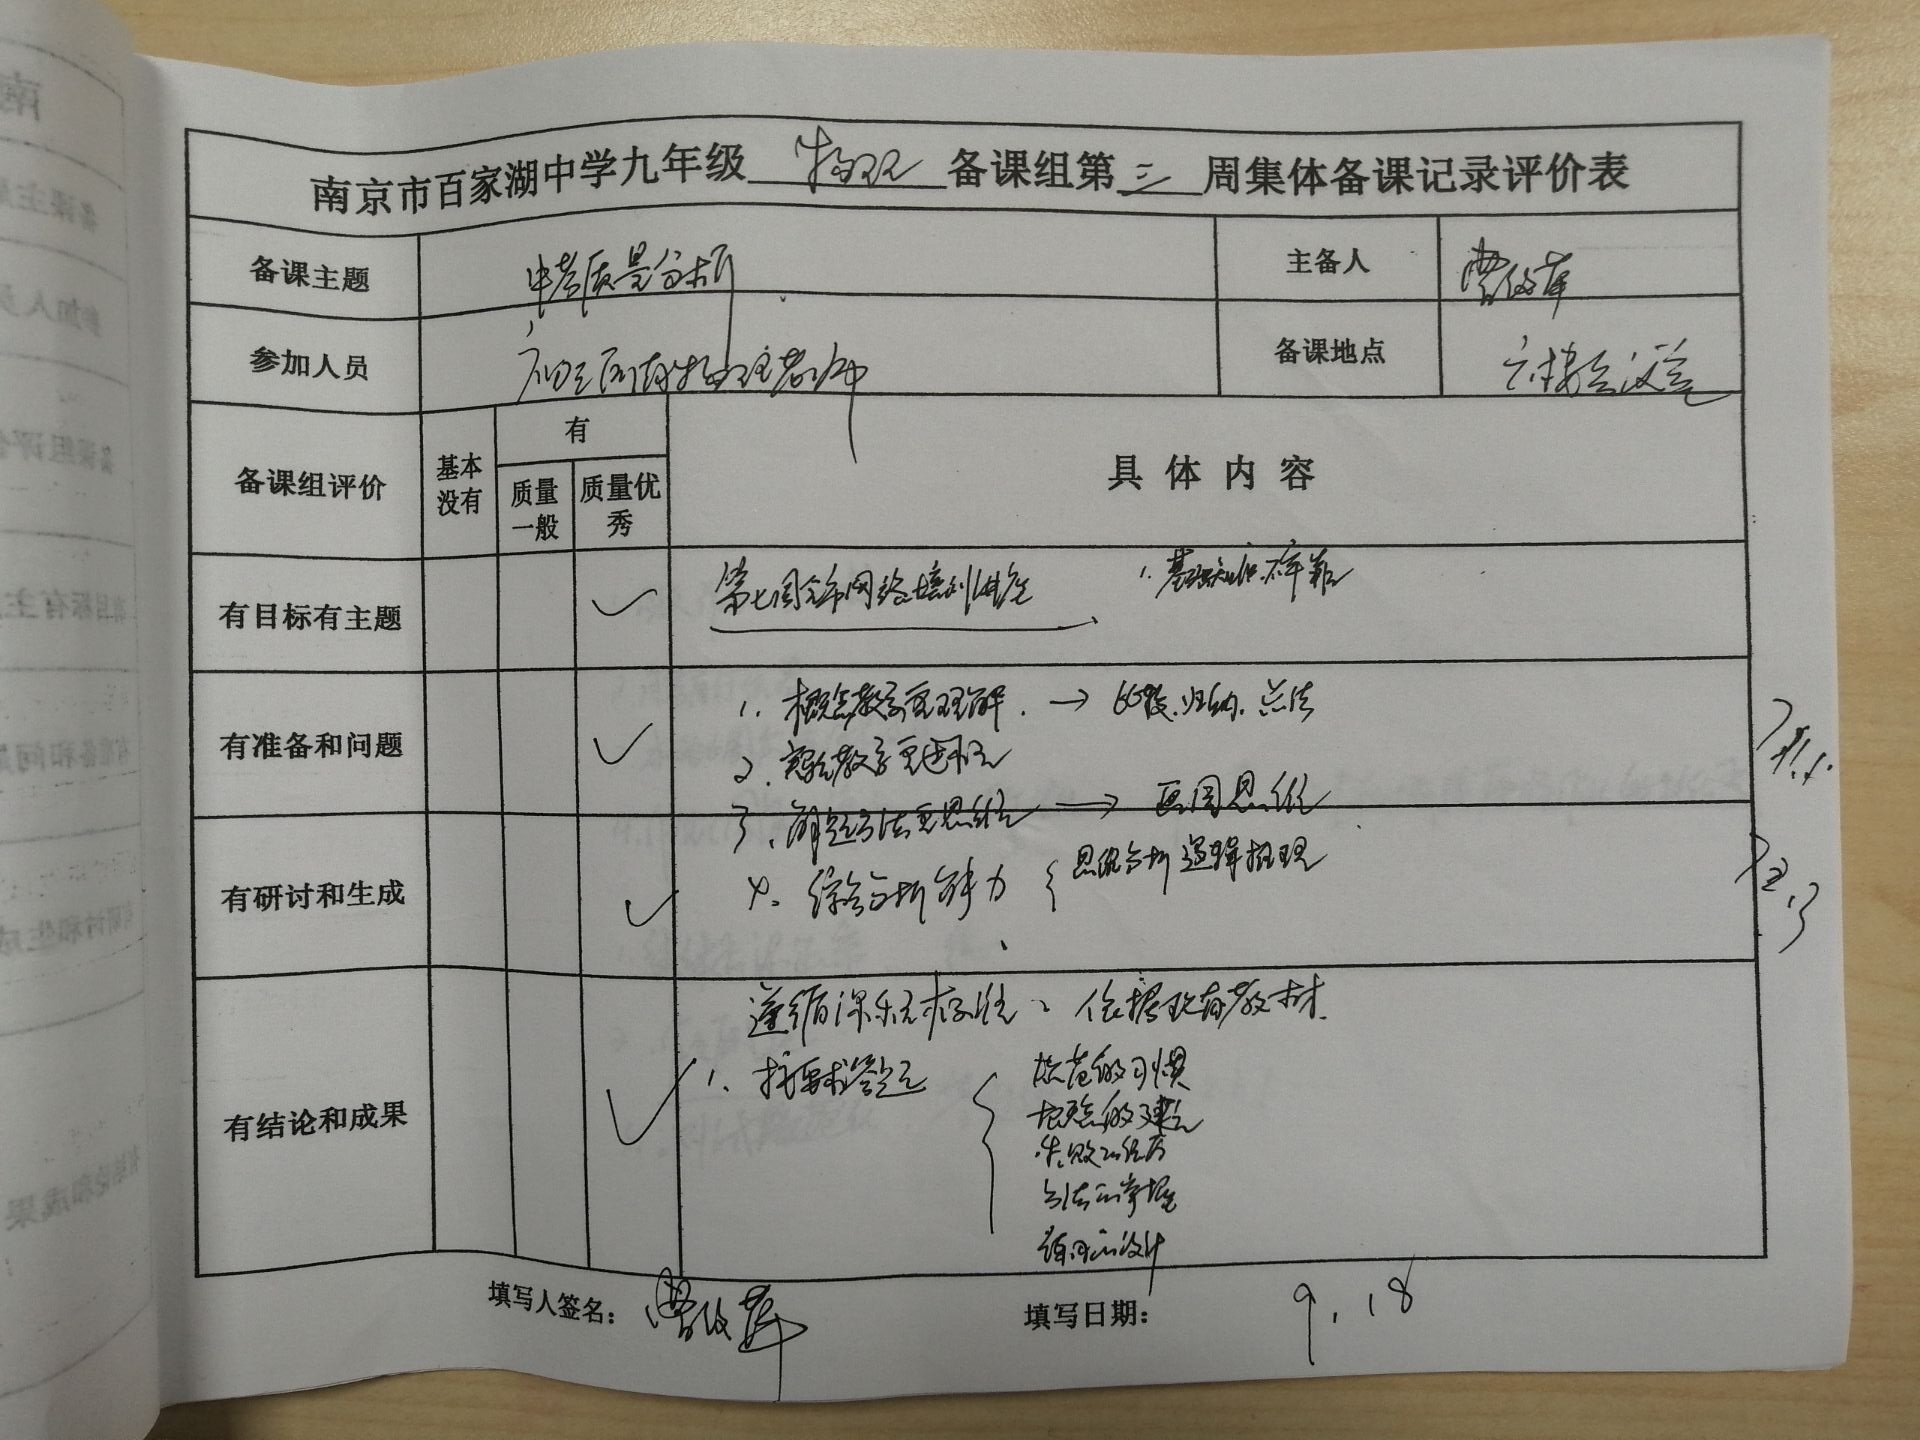 南京市百家湖中学九年级 物理 备课组第 三 周集体备课记录评价表
备课主题 中考质量分析 主备人
参加人员 初三所有物理老师 备课地点 六楼会议室
备课组评价 基本没有 有 质量一般 质量优秀 具体内容
有目标有主题 ✓ 第七周全市网络培训讲座 1. 基础知识
有准备和问题 ✓ 1. 概念教学重理解. → 比较.归纳.总结
2. 实验教学重过程
3. 解题方法重思维 → 画图思维
有研讨和生成 ✓ 4. 综合分析能力 { 思维分析 逻辑推理
有结论和成果 ✓ 遵循课程标准、依据现有教材.
1. 按要求答题 { 规范的习惯
的建立
失败的经历
方法的掌握
的设计
填写人签名：
填写日期： 9.18